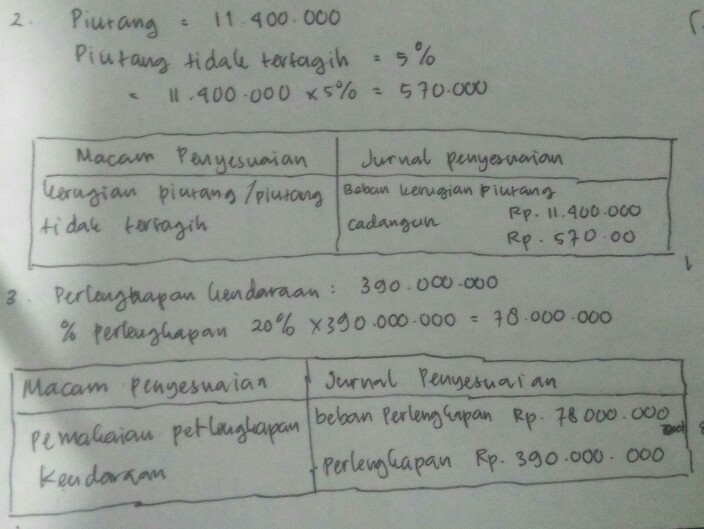 2. Piutang = 11.400.000
Piutang tidak tertagih = 5%
= 11.400.000 x 5% = 570.000
Macam Penyesuaian
Jurnal penyesuaian
Kerugian piutang / piutang
tidak tertagih
Beban kerugian Piutang
Rp. 11.400.000
cadangan
Rp. 570.00
3. Perlengkapan kendaraan : 390.000.000
% perlengkapan 20% x 390.000.000 = 78.000.000
Macam penyesuaian
Jurnal Penyesuaian
Pemakaian perlengkapan
Kendaraan
beban Perlengkapan Rp. 78.000.000
Perlengkapan Rp. 390.000.000